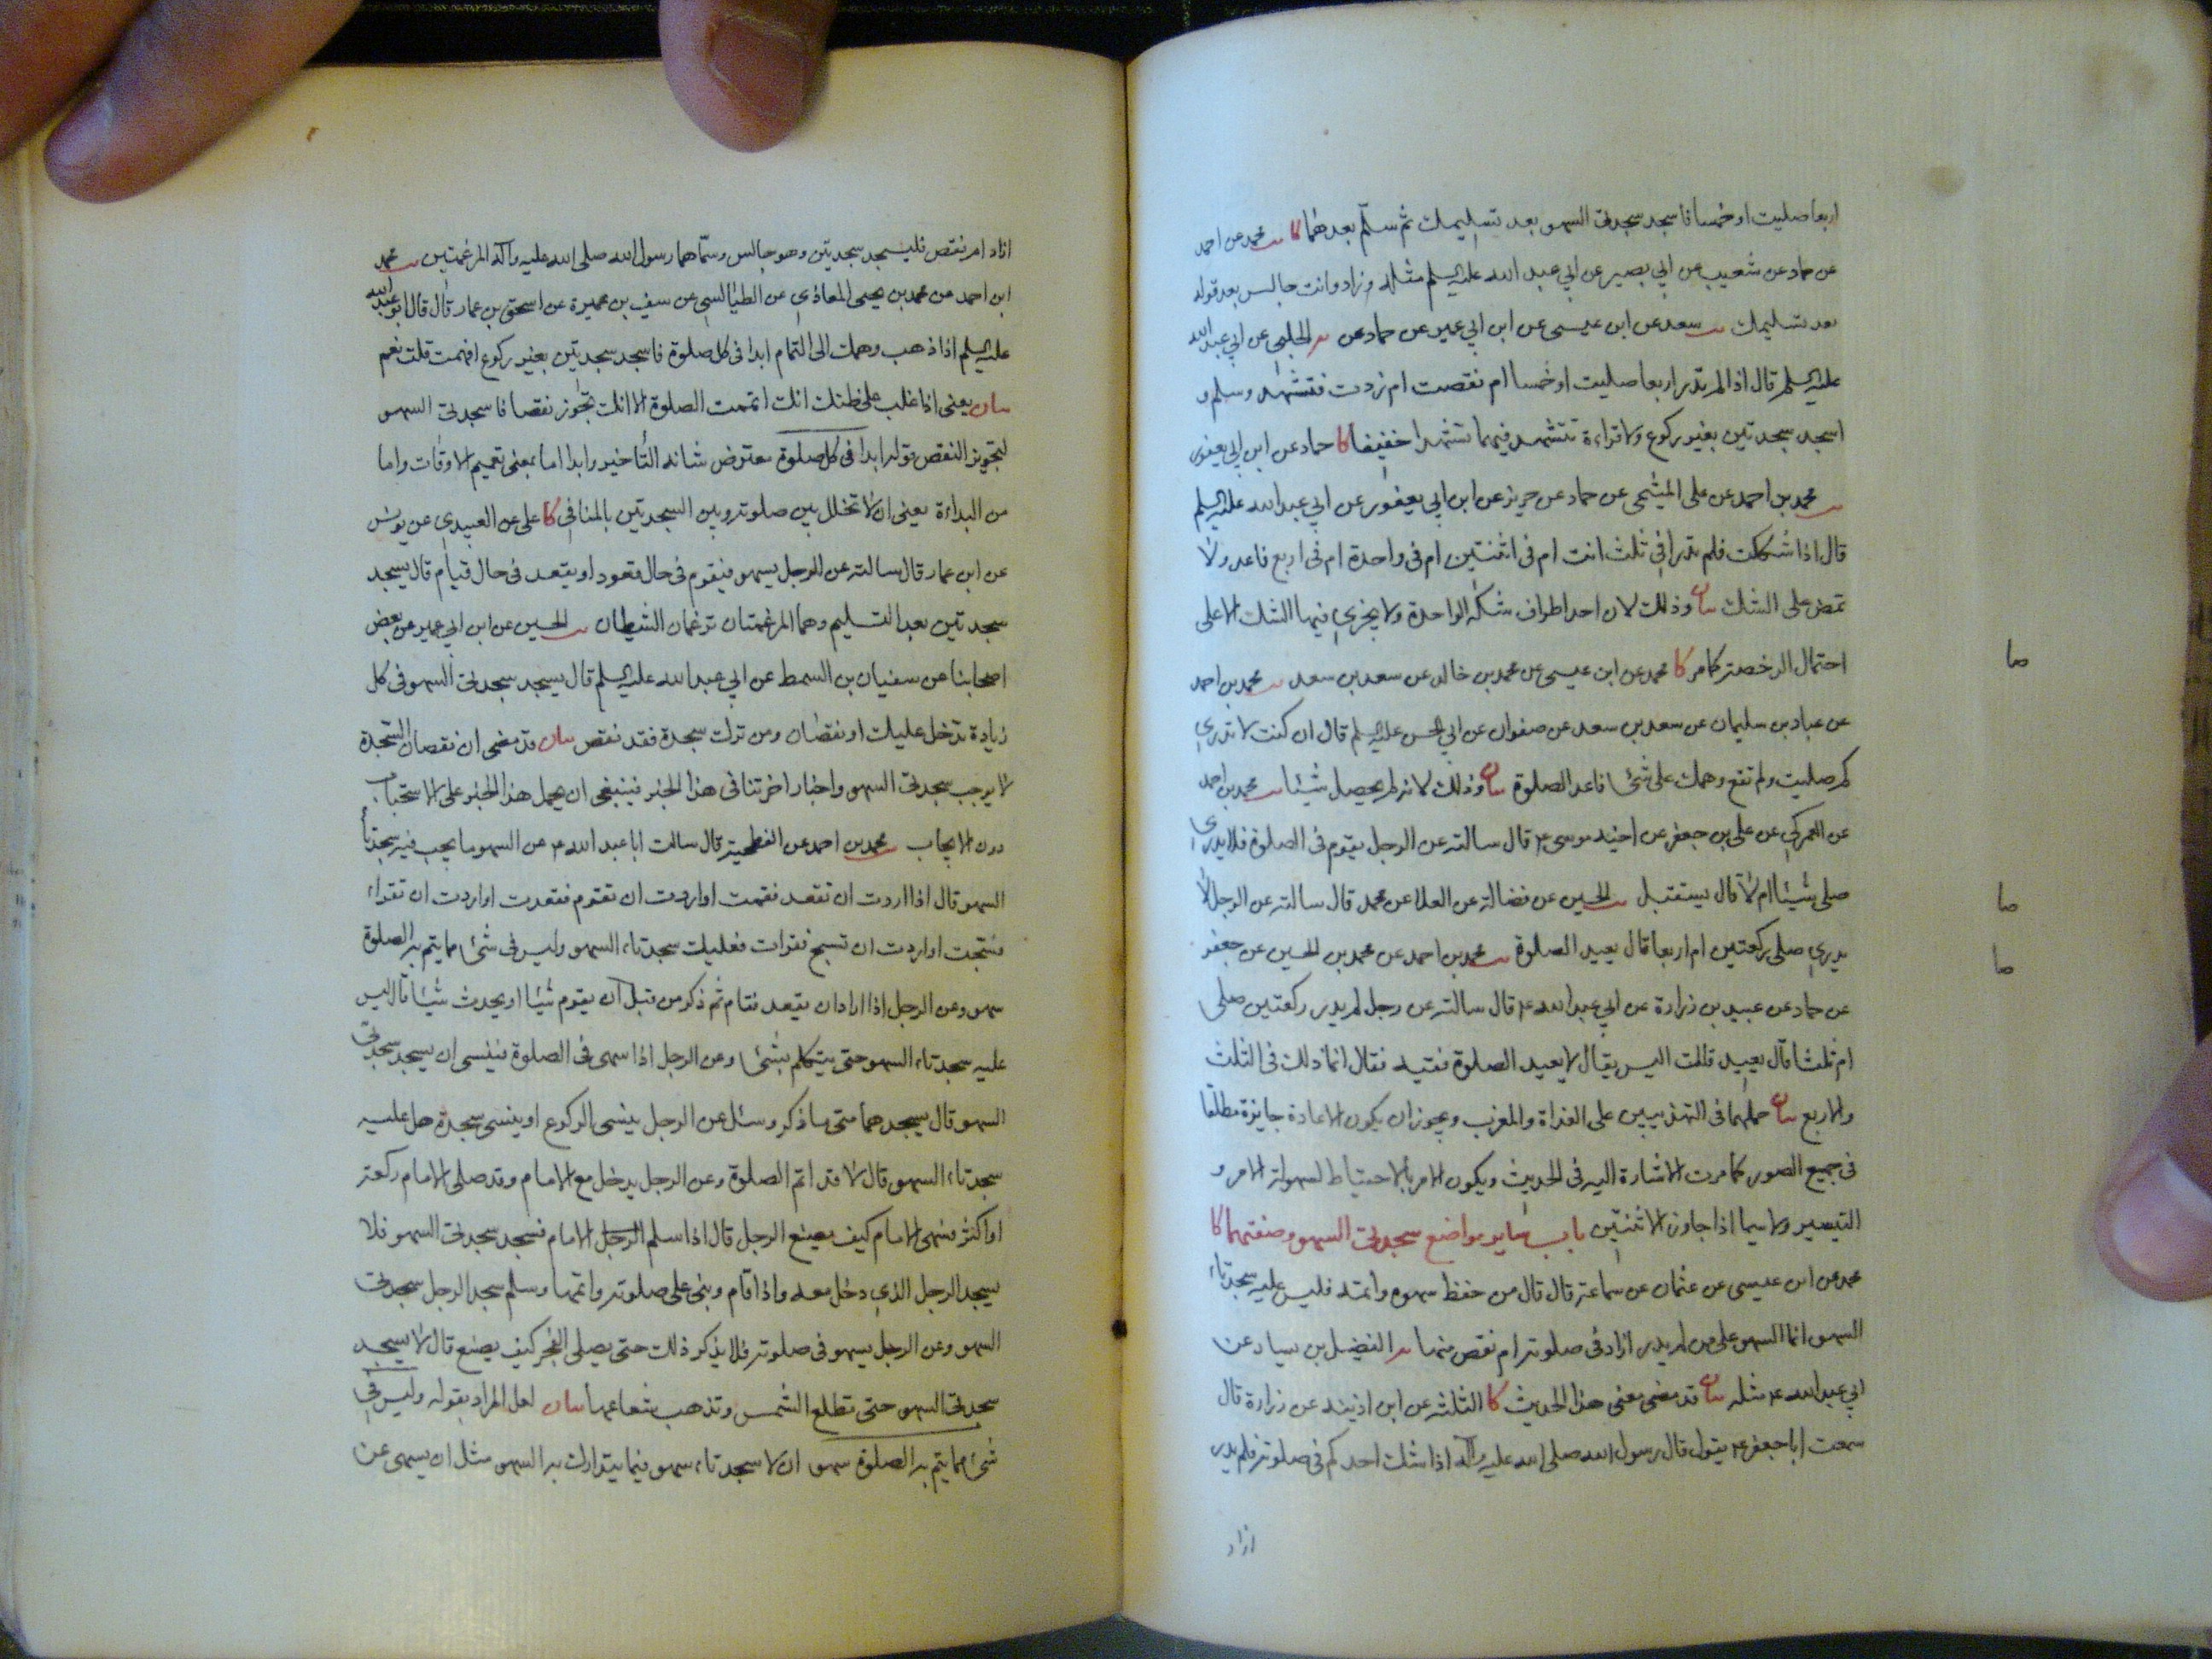 اربعا صليت او خمسا فاسجد سجدتي السهو بعد تسليمك ثم سلّم بعدهما كا يب محمد عن احمد
عن حماد عن شعيب عن ابي بصير عن ابي عبد الله عليه السلم مثله وزاد وانت جالس بعد قوله
بعد تسليمك يب سعد عن ابن عيسى عن ابن ابي عمير عن حماد عن يه الحلبي عن ابي عبد الله
عليه السلم قال اذا لم تدر اربعا صليت او خمسا ام نقصت ام زدت فتشهد وسلم و
اسجد سجدتين بغير ركوع ولا قراءة تتشهد فيهما تشهدا خفيفا كا حماد عن ابن ابي يعفور
يب محمد بن احمد عن علي الميثمي عن حماد عن حريز عن ابن ابي يعفور عن ابي عبد الله عليه السلم
قال اذا شككت فلم تدر افي ثلث انت ام في اثنتين ام في واحدة ام في اربع فاعد ولا
تمض على الشك بيان وذلك لان احد اطراف شكه الواحدة ولا يجزي فيها الشك الا على
احتمال الرخصة كما مر كا محمد عن ابن عيسى عن محمد بن خالد عن سعد بن سعد يب محمد بن احمد
صا
عن عباد بن سليمان عن سعد بن سعد عن صفوان عن ابي الحسن عليه السلم قال ان كنت لا تدري
كم صليت ولم تقع وهمك على شئ فاعد الصلوة بيان وذلك لانه لم يحصل شيئا يب محمد بن احمد
عن العمركي عن علي بن جعفر عن اخيه موسى ع قال سالته عن الرجل يقوم في الصلوة فلا يدري
صلى شيئا ام لا قال يستقبل يب الحسين عن فضالة عن العلا عن محمد قال سالته عن الرجل لا
صا
يدري صلى ركعتين ام اربعا قال يعيد الصلوة يب محمد بن احمد عن محمد بن الحسين عن جعفر
صا
عن حماد عن عبيد بن زرارة عن ابي عبد الله ع قال سالته عن رجل لم يدر ركعتين صلى
ام ثلثا قال يعيد قلت اليس يقال لا يعيد الصلوة فقيه فقال انما ذلك في الثلث
والاربع بيان حملهما في التهذيبين على الغداة والمغرب ويجوز ان يكون الاعادة جايزة مطلقا
في جميع الصور كما مرت الاشارة اليه في الحديث ويكون الامر بالاحتياط لسهولة الامر و
التيسير ولا سيما اذا جاوز الاثنتين باب ساير مواضع سجدتي السهو وصفتهما كا
محمد عن ابن عيسى عن عثمان عن سماعة قال قال من حفظ سهوه واتمه فليس عليه سجدتا
السهو انما السهو على من لم يدر ازاد في صلوته ام نقص منها يه الفضيل بن يسار عن
ابي عبد الله ع مثله بيان قد مضى معنى هذا الحديث كا الثلثة عن ابن اذينة عن زرارة قال
سمعت ابا جعفر ع يقول قال رسول الله صلى الله عليه وآله اذا شك احدكم في صلوته فلم يدر
ازاد
ازاد ام نقص فليسجد سجدتين وهو جالس وسمّاهما رسول الله صلى الله عليه وآله المرغمتين يب محمد
ابن احمد عن محمد بن يحيى المعاذي عن الطيالسي عن سيف بن عميرة عن اسحق بن عمار قال قال ابو عبد الله
عليه السلم اذا ذهب وهمك الى التمام ابدا في كل صلوة فاسجد سجدتين بغير ركوع افهمت قلت نعم
بيان يعني اذا غلب على ظنك انك اتممت الصلوة الا انك تجوز نقصا فاسجد سجدتي السهو
لتجويز النقص قوله ابدا في كل صلوة معترض شانه التأخير وابدا اما بمعنى تعميم الاوقات واما
من البداءة يعني ان لا تخلل بين صلوته وبين السجدتين بالمنافي كا علي عن العبيدي عن يونس
عن ابن عمار قال سالته عن الرجل يسهو فيقوم في حال قعود او يقعد في حال قيام قال يسجد
سجدتين بعد التسليم وهما المرغمتان ترغمان الشيطان يب الحسين عن ابن ابي عمير عن بعض
اصحابنا عن سفيان بن السمط عن ابي عبد الله عليه السلم قال يسجد سجدتي السهو في كل
زيادة تدخل عليك او نقصان ومن ترك سجدة فقد نقص بيان قد مضى ان نقصان السجدة
لا يوجب سجدتي السهو واخبار اخر تنافي هذا الخبر فينبغي ان يحمل هذا الخبر على الاستحباب
دون الايجاب يب محمد بن احمد عن الفطحية قال سالت ابا عبد الله ع عن السهو ما يجب فيه سجدتا
السهو قال اذا اردت ان تقعد فقمت او اردت ان تقوم فقعدت او اردت ان تقراء
فسبّحت او اردت ان تسبح فقرات فعليك سجدتاء السهو وليس في شئ مما يتم به الصلوة
سهو وعن الرجل اذا اراد ان يقعد فقام ثم ذكر من قبل ان يقوم شيئا او يحدث شيئا قال ليس
عليه سجدتاء السهو حتى يتكلم بشئ وعن الرجل اذا سهى في الصلوة فينسى ان يسجد سجدتي
السهو قال يسجدهما متى ما ذكر وسئل عن الرجل ينسى الركوع او ينسى سجدة هل عليه
سجدتاء السهو قال لا قد اتم الصلوة وعن الرجل يدخل مع الامام وقد صلى الامام ركعة
او اكثر فسهى الامام كيف يصنع الرجل قال اذا سلم الرجل الامام فسجد سجدتي السهو فلا
يسجد الرجل الذي دخل معه واذا قام وبنى على صلوته واتمها وسلم سجد الرجل سجدتي
السهو وعن الرجل يسهو في صلوته فلا يذكر ذلك حتى يصلي الفجر كيف يصنع قال لا يسجد
سجدتي السهو حتى تطلع الشمس وتذهب شعاعها بيان لعل المراد بقوله وليس في
شئ مما يتم به الصلوة سهو ان لا سجدتاء سهو فيما يتدارك به السهو مثل ان يسهى عن